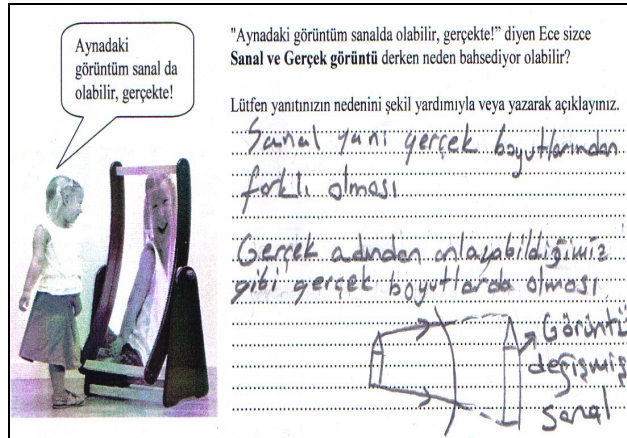 Aynadaki
görüntüm sanal da
olabilir, gerçekte!
"Aynadaki görüntüm sanalda olabilir, gerçekte!" diyen Ece sizce
Sanal ve Gerçek görüntü derken neden bahsediyor olabilir?
Lütfen yanıtınızın nedenini şekil yardımıyla veya yazarak açıklayınız.
Sanal yani gerçek boyutlarından
farklı olması
Gerçek adından anlayabildiğimiz
gibi gerçek boyutlarda olması
Görüntü
değişmiş
sanal